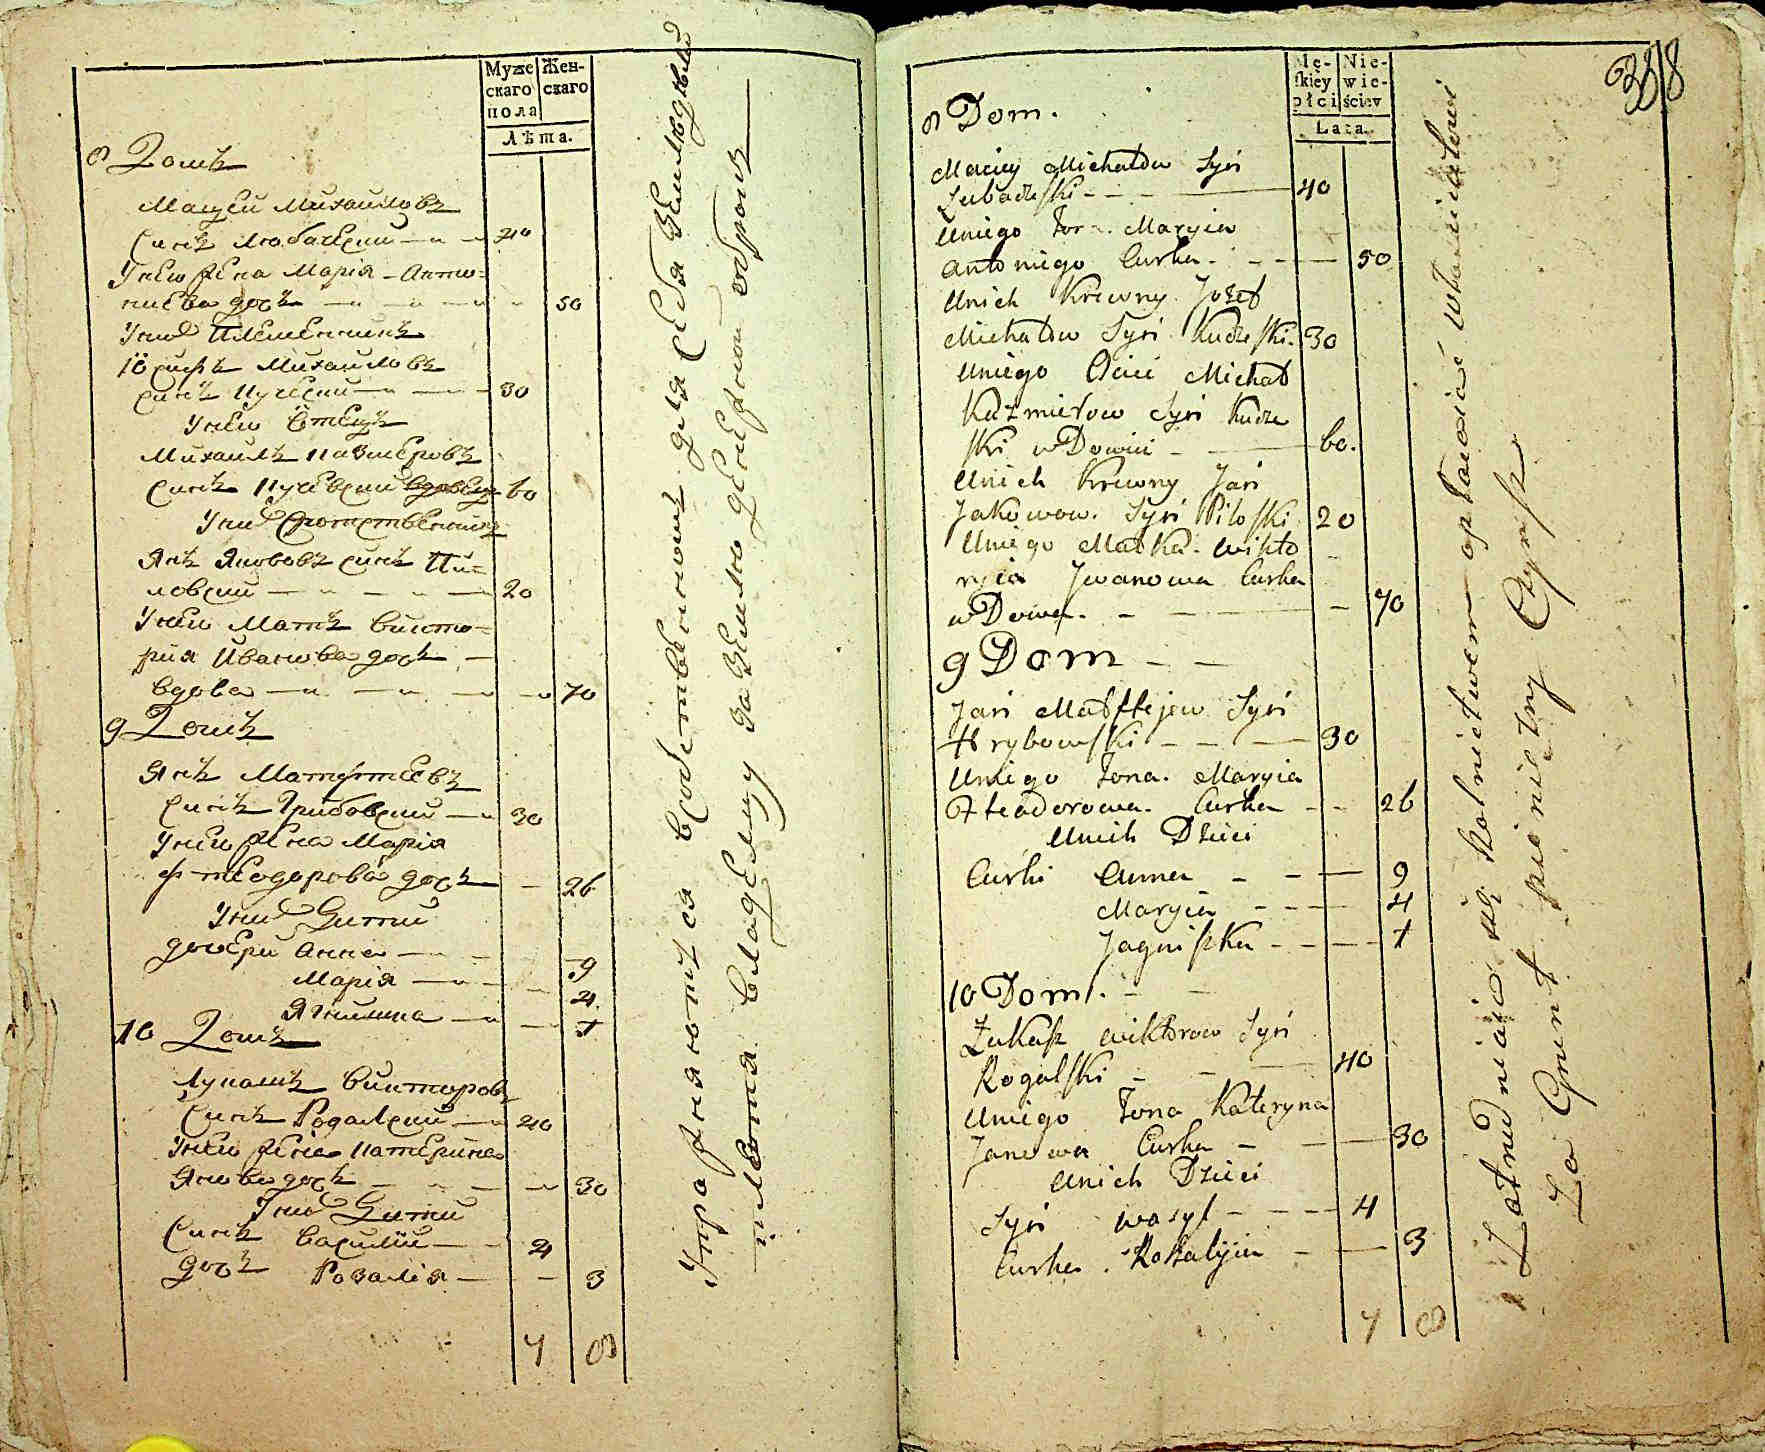 Муже
скаго
пола
Жен-
скаго
Лѣта.
8 Домъ
Мацей Михайловъ
Сынъ Любачески 40
Унего жена Марія Анто-
ниева дочь 50
Унихъ Племенникъ
Іосифъ Михайловъ
сынъ Кучески 30
Унего Отецъ
Михайлъ Казмеровъ
сынъ Кучевски вдовец 60
Унихъ Сродственникъ
Янъ Якововъ сынъ Пи-
ловски 20
Унего Мать Викто-
рия Иванова дочь
вдова 70
9 Домъ
Янъ Матфтеевъ
сынъ Грибовски 30
Унего жена Марія
Фтеодорова дочь 26
Унихъ Дети
дочери Анна 9
Марія 4
Ягнишка 1
10 Домъ
Лукашъ Викторовъ
Сынъ Рогалски 40
Унего жена Катерина
Янова дочь 30
Унихъ Дети
Сынъ Василии 4
дочь Розалія 3
7 8
Упражняются в содственномъ для себя земледелии
платя владелцу за землю денежной оброкъ
Mę-
skiey
płci
Nie-
wie-
ściey
Lata.
358
8 Dom.
Maciey Michałow Syn
Lubaczeski 40
Uniego żona Maryia
Antoniego Curka 50
Unich Krewny Jozef
Michałow Syn Kuczeski 30
Uniego Ociec Michał
Kazmierow Syn Kucze
ski wDowiec 60.
Unich Krewny Jan
Jakowow. Syn Piloski 20
Uniego Matka. Wikto
ryia Jwanowa Curka
wDowa. 70
9 Dom
Jan Matftejew Syn
Hrybowski 30
Uniego żona. Maryia
Fteodorowa. Curka 26
Unich Dzieci
Curki Anna 9
Maryia 4
Jagniszka 1
10 Dom.
Łukasz Wiktorow Syn
Rogalski 40
Uniego żona Kateryna
Janowa Curka 30
Unich Dzieci
Syn Wasyl 4
Curka Rozalyia 3
7 8
Zatrudniaią się Rolnictwem opłacaiąc właścicielowi
Za Grunt pienięzny Czynsz